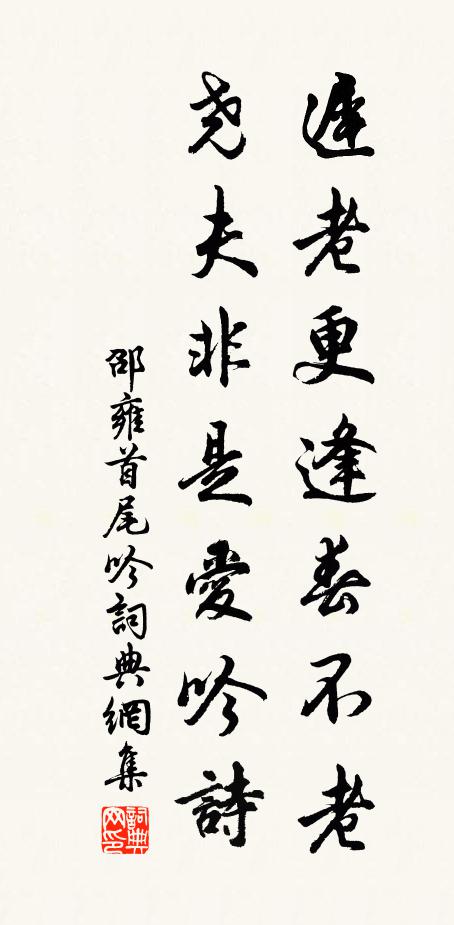 遲老更逢春不老
堯夫非是愛吟詩
邵雍首尾吟詞典網集
詞典网印